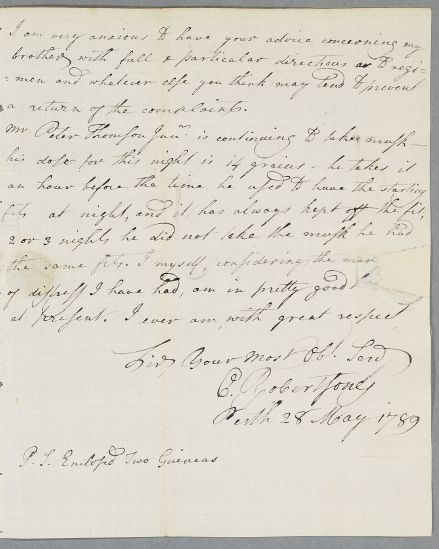 I am very anxious to have your advice concerning my
brother, with full & particular directions as to regi-
=men and whatever else you think may tend to prevent
a return of the complaints.
Mr. Peter Thomson Junr. is continuing to take musk –
his dose for this night is 14 grains – he takes it
an hour before the time he used to have the starting
fits at night, and it has always kept off the fit,
2 or 3 nights he did not take the musk he had
the same fits. I myself, considering the
of distress I have had, am in pretty good
at present. I ever am, with great respect
Sir, Your Most Obt. Serv
C. Robertson
Perth 28 May 1789
P.S. Enclosed Two Guineas